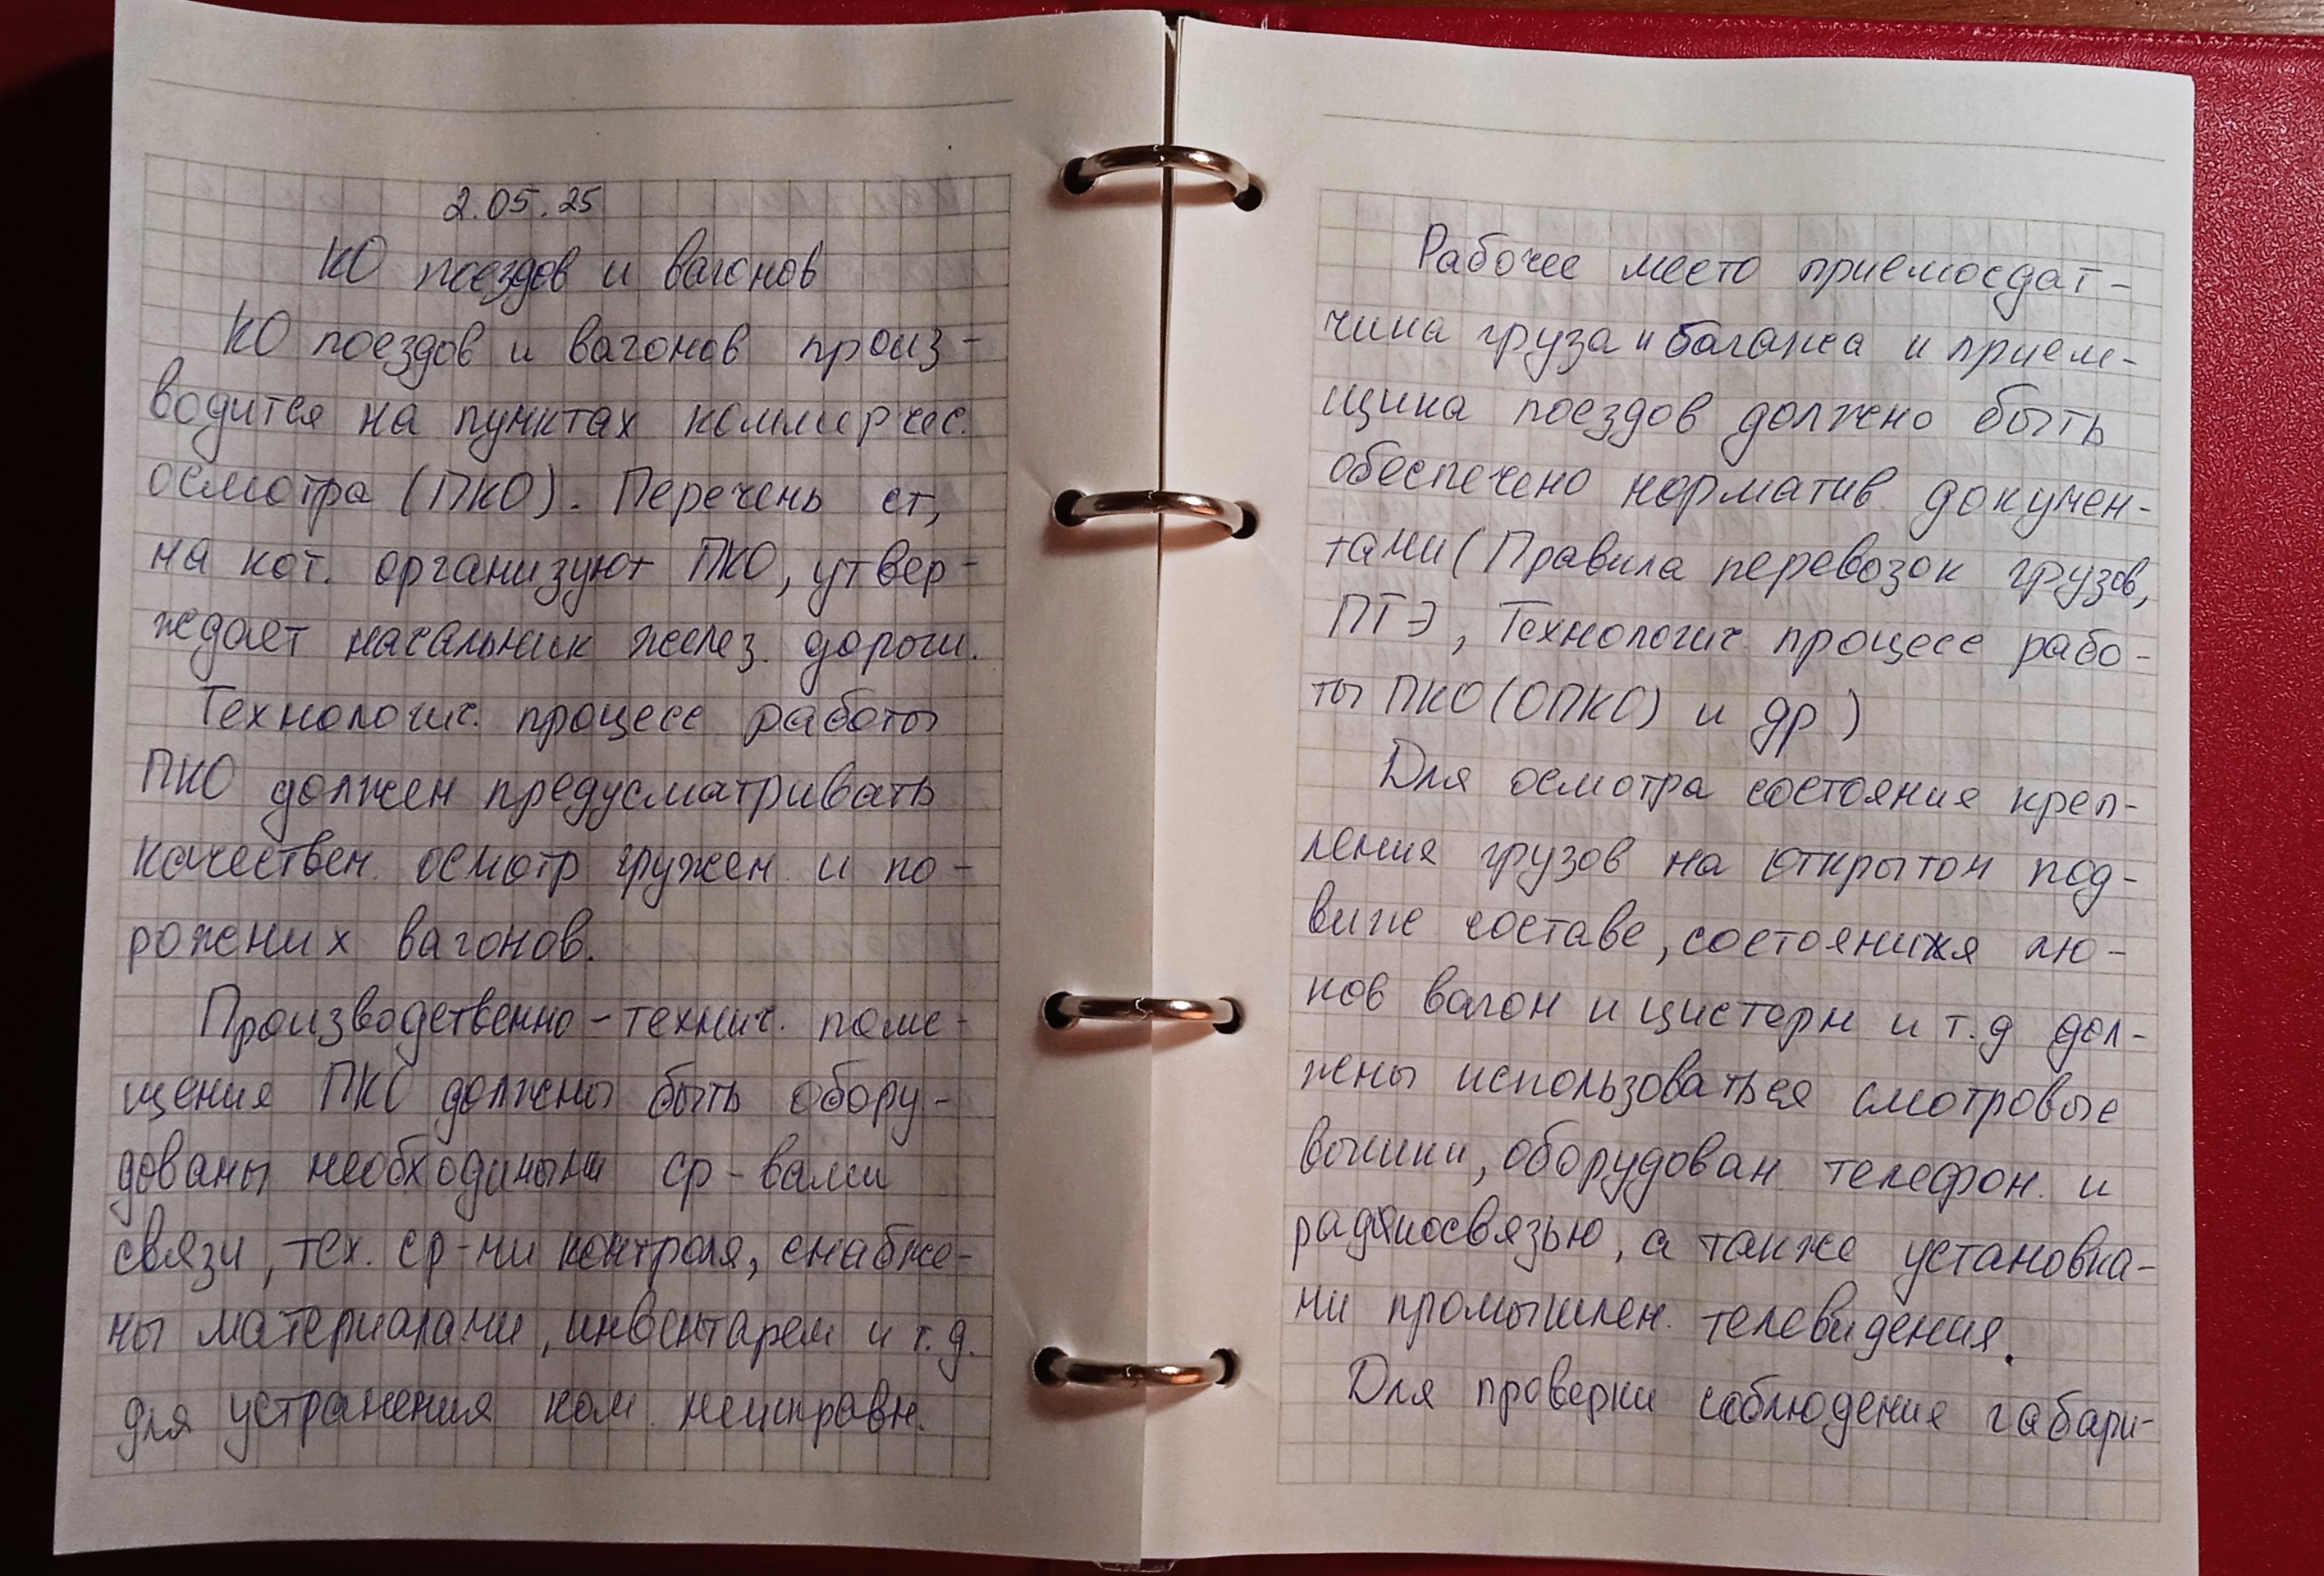 2.05.25
КО поездов и вагонов
КО поездов и вагонов произ-
водится на пунктах коммерчес.
осмотра (ПКО). Перечень ст,
на кот. организуют ПКО, утвер-
ждает начальник желез. дороги.
Технологич. процесс работы
ПКО должен предусматривать
качествен. осмотр гружен. и по-
рожених вагонов.
Производственно-технич. поме-
щения ПКО должны быть обору-
дованы необходимыми ср-вами
связи, тех. ср-ми контроля, снабже-
ны материалами, инвентарем и т.д.
для устранения ком. неисправн.
Рабочее место приемосдат-
чика груза и багажа и прием-
щика поездов должно быть
обеспечено норматив. докумен-
тами (Правила перевозок грузов,
ПТЭ, Технологич. процесс рабо-
ты ПКО (ОПКО) и др)
Для осмотра состояния креп-
ления грузов на открытом под-
виж составе, состояния лю-
ков вагон и цистерн и т.д дол-
жены использоваться смотровые
вышки, оборудован телефон. и
радиосвязью, а также установка-
ми промышлен. телевидения.
Для проверки соблюдения габари-